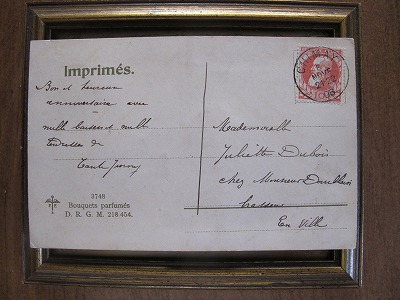 Imprimés.
Bon et heureux
anniversaire avec
mille baisers et mille
tendresses de
Tante Jenny
3748
Bouquets parfumés
D. R. G. M. 218 454.
CHIMAY
Mademoiselle
Juliette Dubois
chez Monsieur
brasseur
En Ville